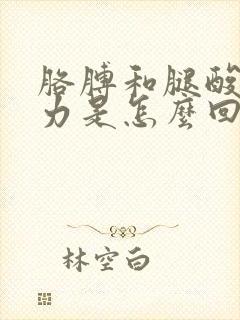 胳膊和腿酸
力是怎麼回
林空白